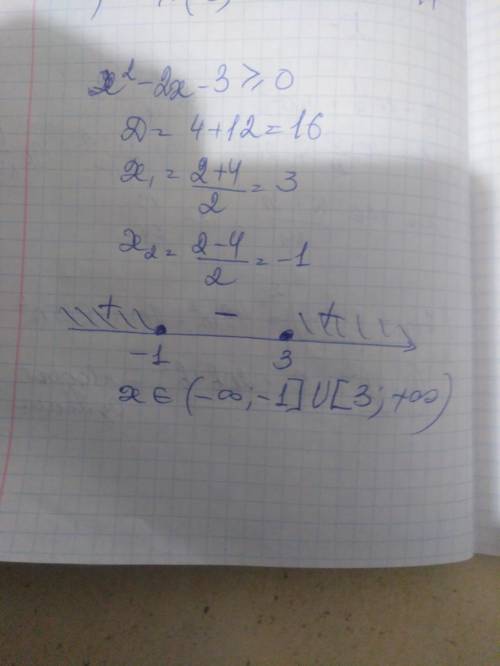 x² - 2x - 3 ≥ 0
D = 4 + 12 = 16
x₁ = (2+4)/2 = 3
x₂ = (2-4)/2 = -1
+ - +
-1 3
x ∈ (-∞; -1] ∪ [3; +∞)